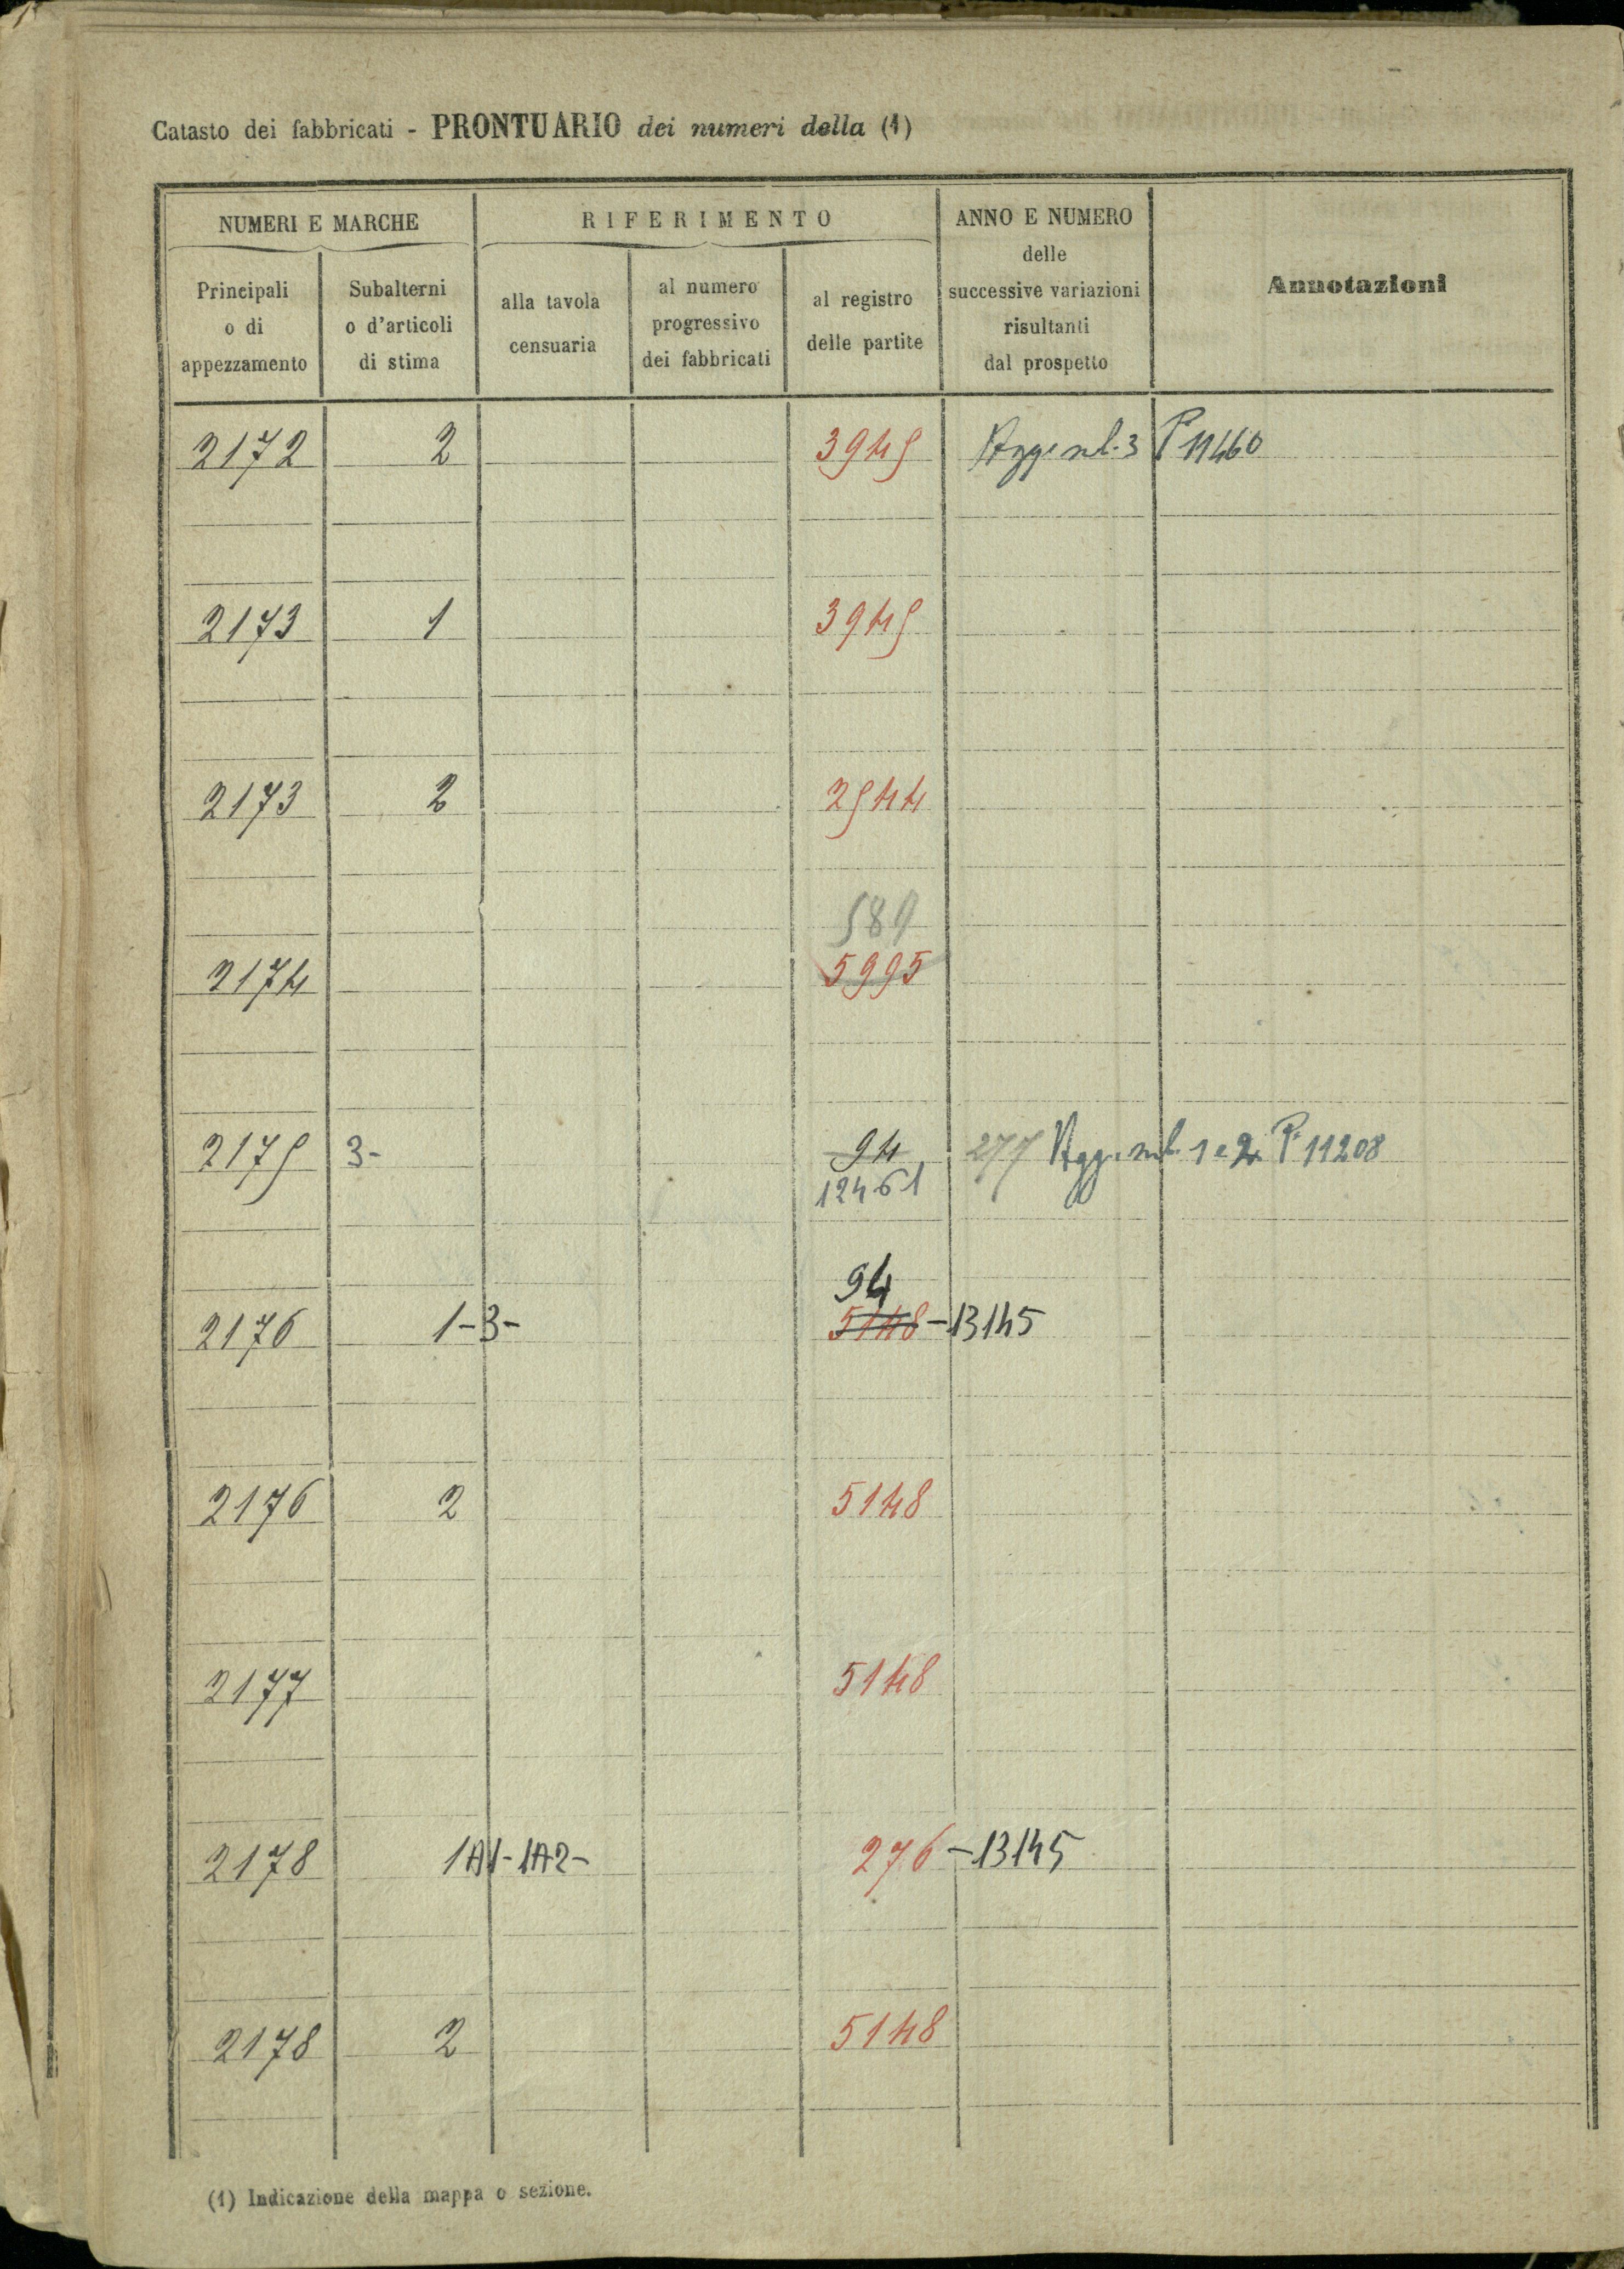 Catasto dei fabbricati - PRONTUARIO dei numeri della (1)
NUMERI E MARCHE RIFERIMENTO ANNO E NUMERO delle successive variazioni risultanti dal prospetto Annotazioni
Principali o di appezzamento Subalterni o d'articoli di stima alla tavola censuaria al numero progressivo dei fabbricati al registro delle partite
2172 2 3945 Agg. sub. 3 P 11460
2173 1 3945
2173 2 2544
589
2174 5995
2175 3- 94 277 Agg. sub. 1 e 2 P 11208
12461
94
2176 1-3- 5148-13145
2176 2 5148
2177 5148
2178 1A1-1A2- 276-13145
2178 2 5148
(1) Indicazione della mappa o sezione.